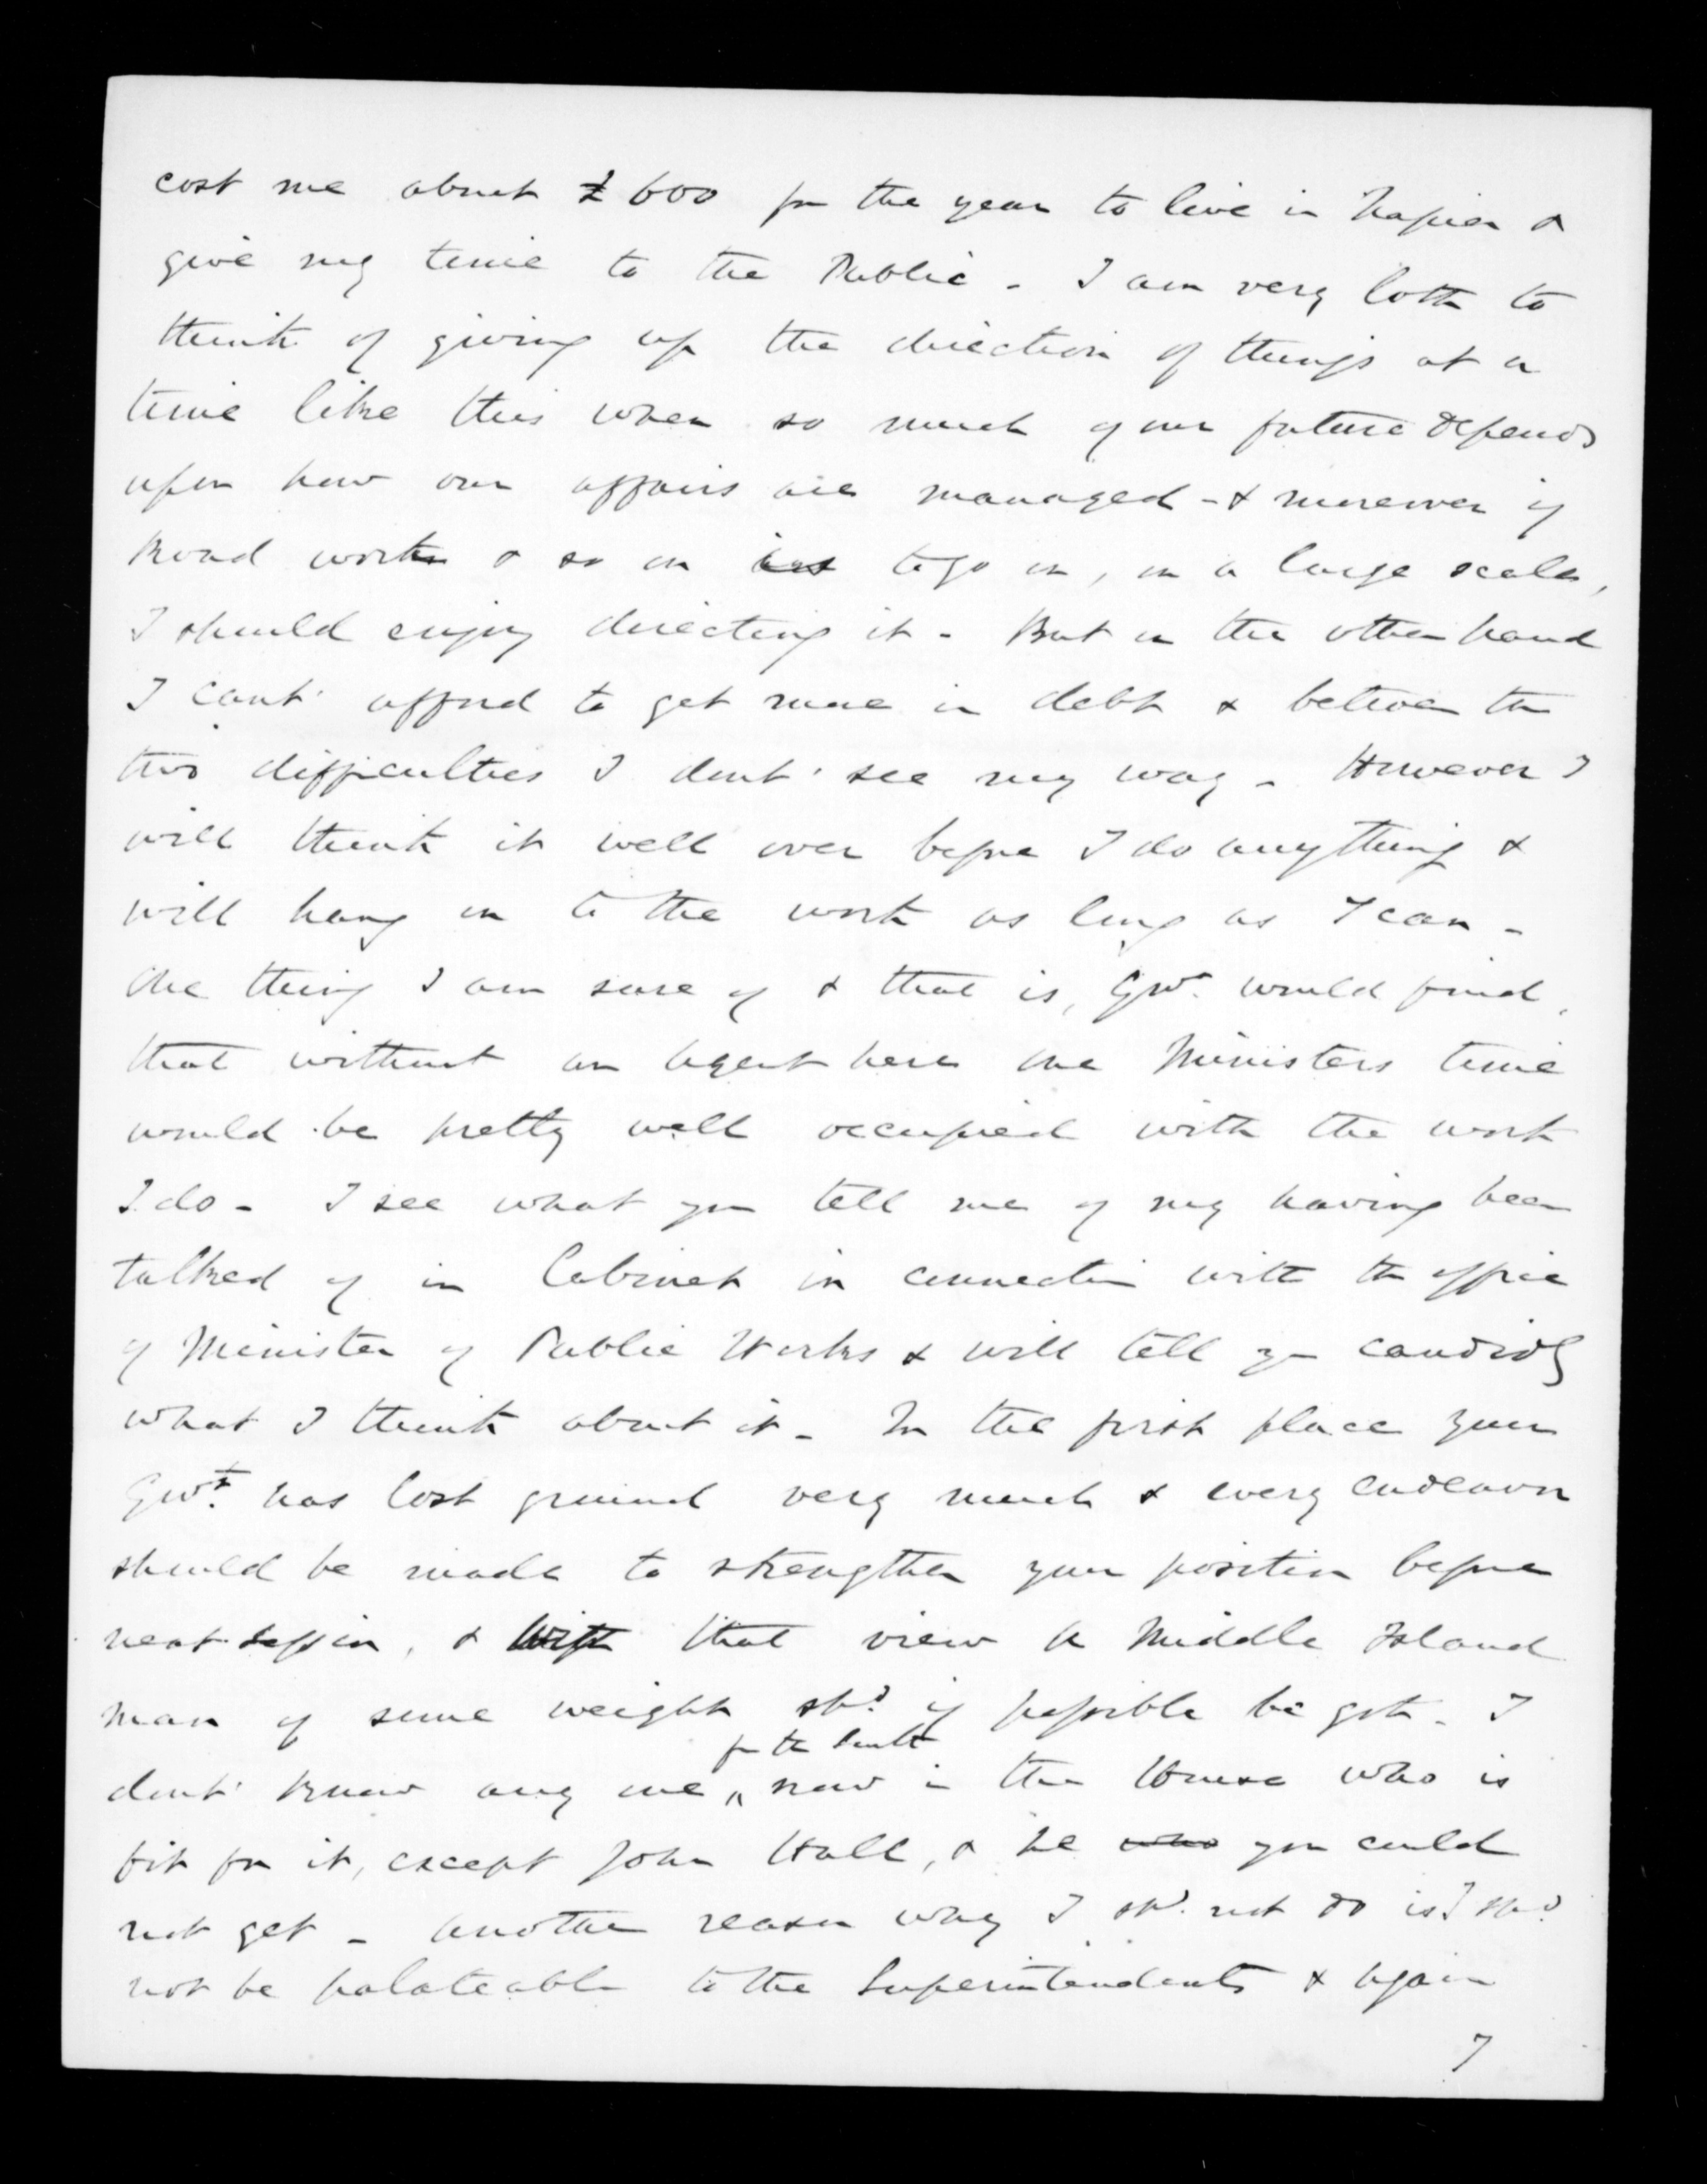 cost me about £600 for the year to live in Napier &
give my time to the Public - I am very loth to
think of giving up the direction of things at a
time like this when so much of our future depends
upon how our affairs are managed - & moreover if
Road work & so on is to go on, on a large scale,
I should enjoy directing it - But on the other hand
I cant afford to get more in debt & between the
two difficulties I dont see my way - However I
will think it well over before I do anything &
will hang on to the work as long as I can -
One thing I am sure of & that is, Govt. would find,
that without an Agent here one Ministers time
would be pretty well occupied with the work
I do - I see what you tell me of my having been
talked of in Cabinet in connection with the office
of Minister of Public Works & will tell you candidly
what I think about it - In the first place your
Govt. has lost ground very much & every endeavour
should be made to strengthen your position before
next session, & with that view a Middle Island
man of some weight shd. if possible be got - I
for the South
dont know any one now in the House who is
fit for it, except John Hall, & he who you could
not get - Another reason why I shd. not do is I shd.
not be palateable to the Superintendents & again
7